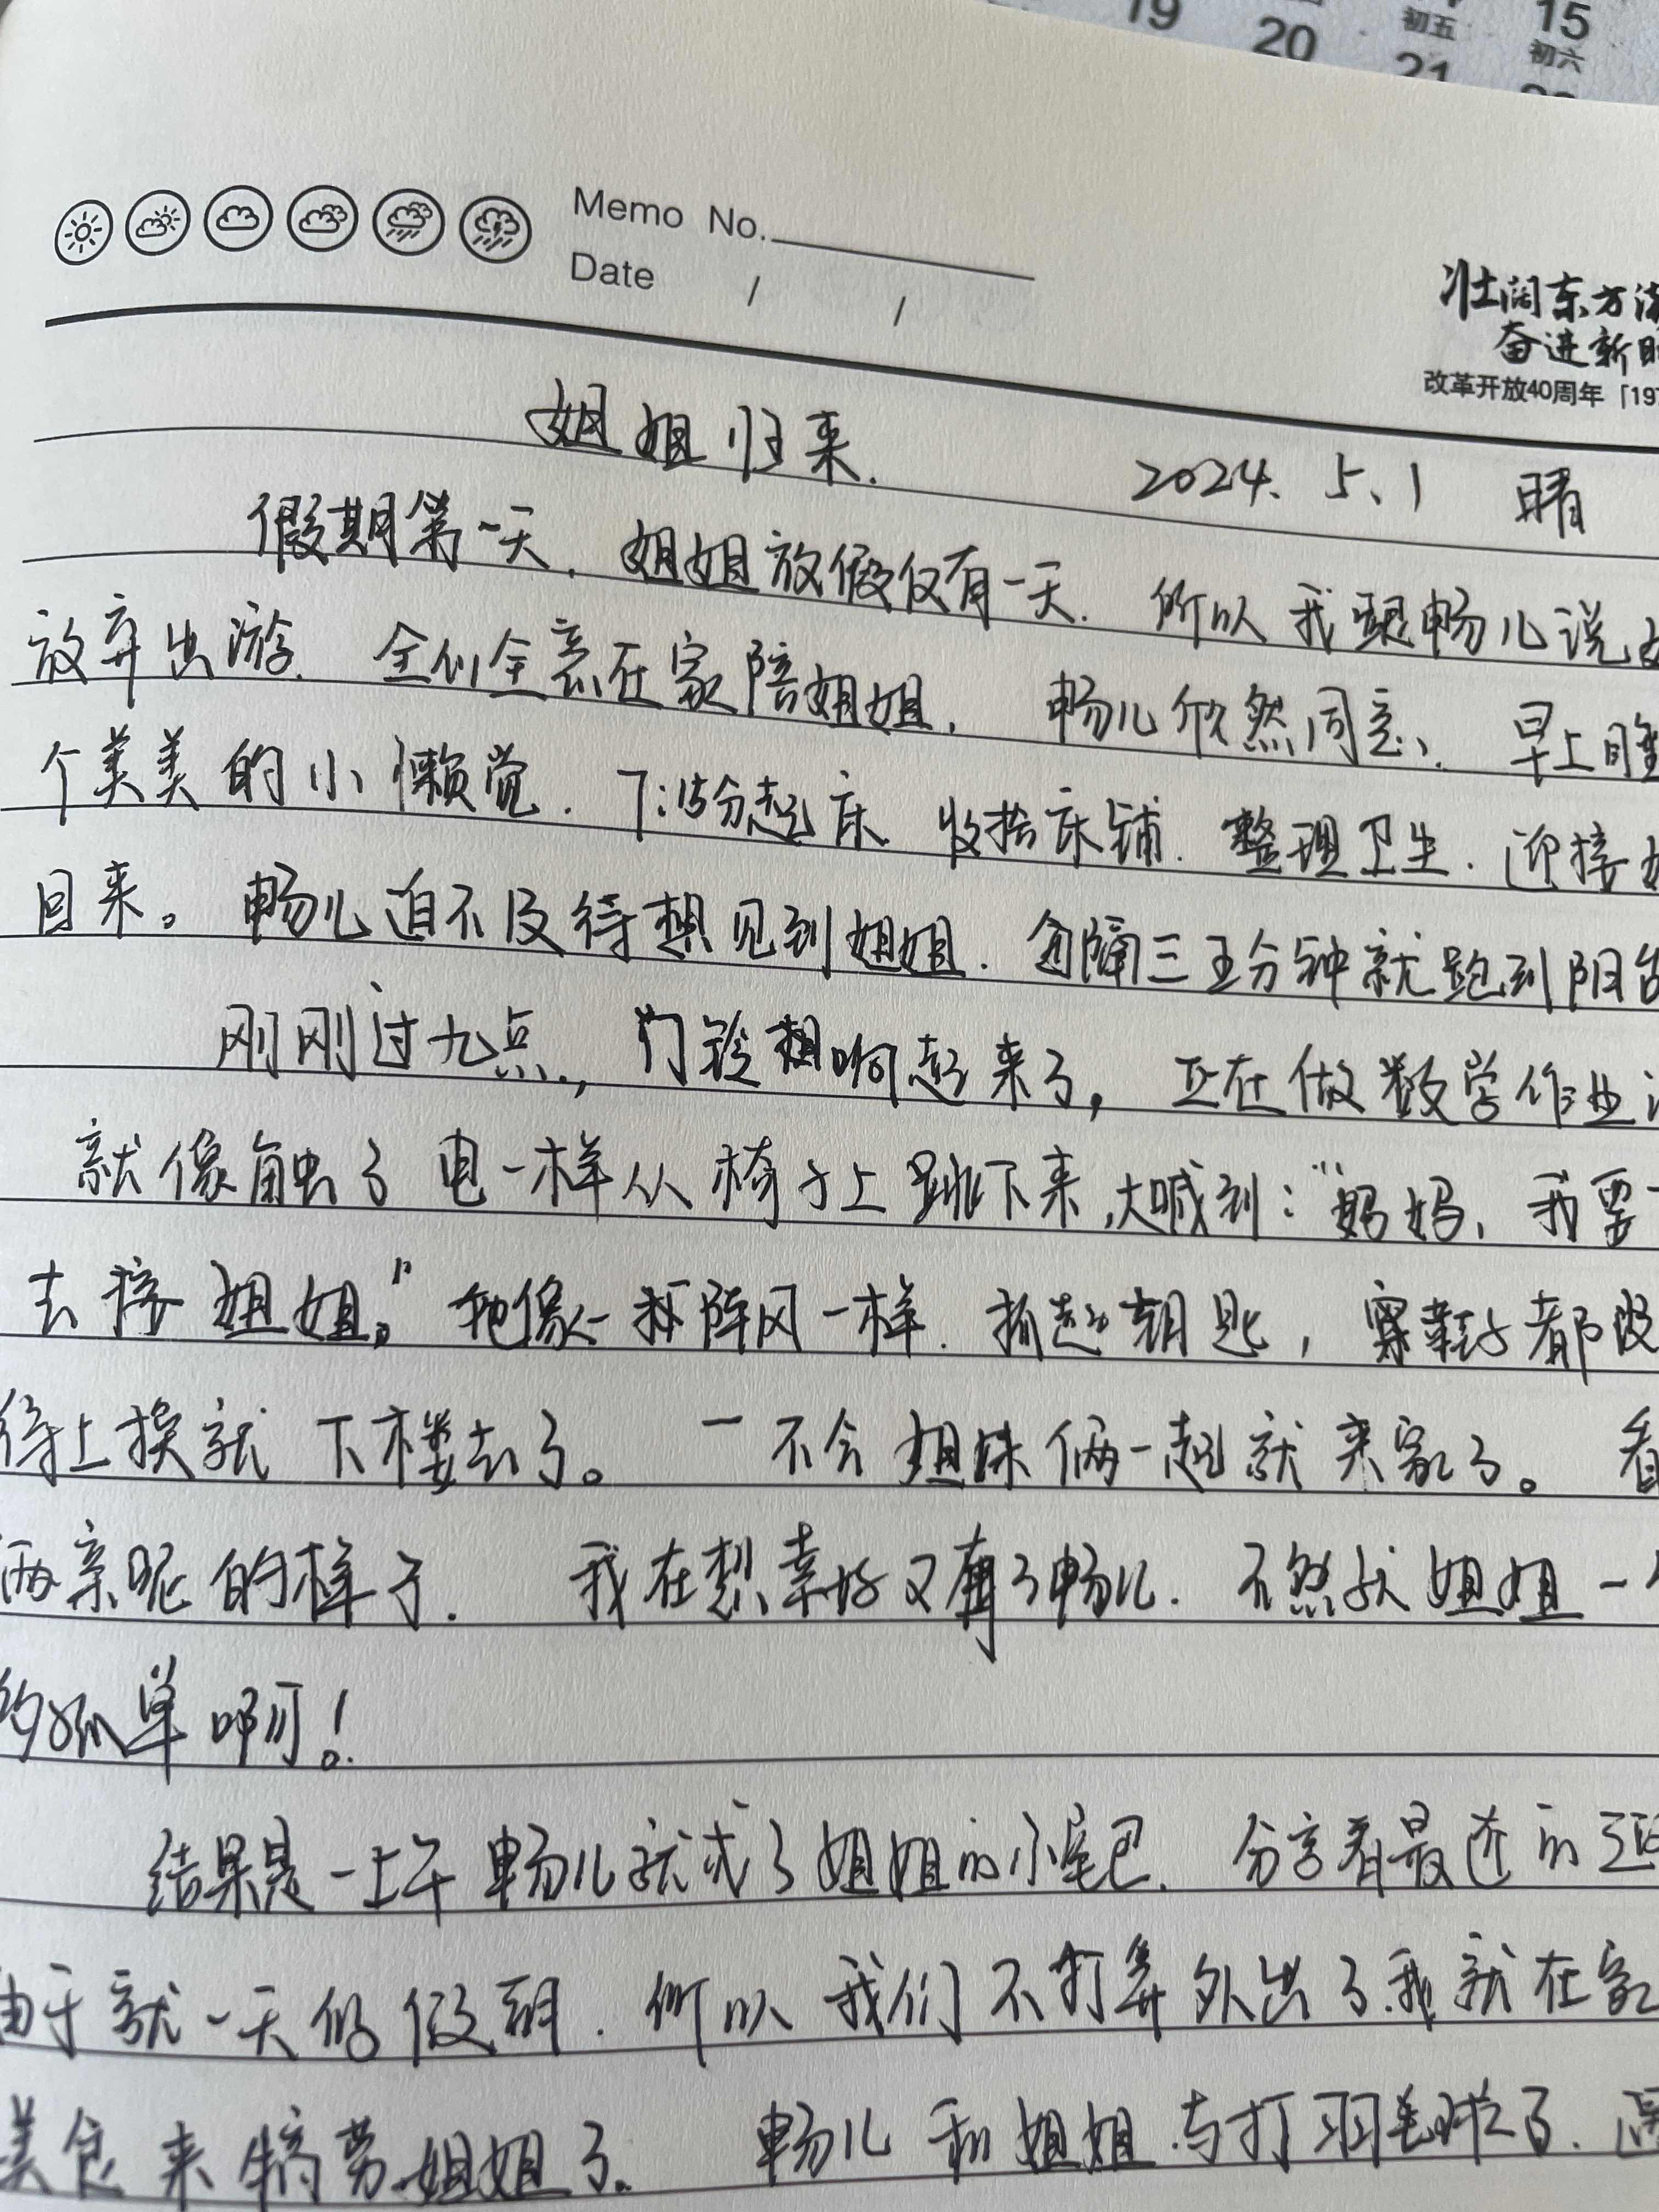 19 20 初五 21 15 初六
Memo No.
Date / /
壮阔东方
奋进新
改革开放40周年「19
姐姐归来. 2024. 5. 1 晴
假期第一天. 姐姐放假仅有一天. 所以我跟畅儿说
放弃出游. 全心全意在家陪姐姐. 畅儿欣然同意. 早上睡
个美美的小懒觉. 7:15分起床 收拾床铺. 整理卫生. 迎接
回来。 畅儿迫不及待想见到姐姐. 每隔三五分钟就跑到阳台
刚刚过九点, 门铃响起来了, 正在做数学作业
就像触了电一样从椅子上跳下来,大喊到:“妈妈, 我要
去接姐姐。” 她像一阵风一样. 抓起钥匙, 鞋子都没
得上换就下楼去了。 一不会姐妹俩一起就来家了。 看
两亲昵的样子. 我在想幸好又有了畅儿. 不然就姐姐一
的孤单啊!
结果是一上午畅儿就成了姐姐的小尾巴. 分享着最近的
由于就一天的假期. 所以我们不打算外出了.我就在家
美食来犒劳姐姐了. 畅儿和姐姐去打羽毛球了.